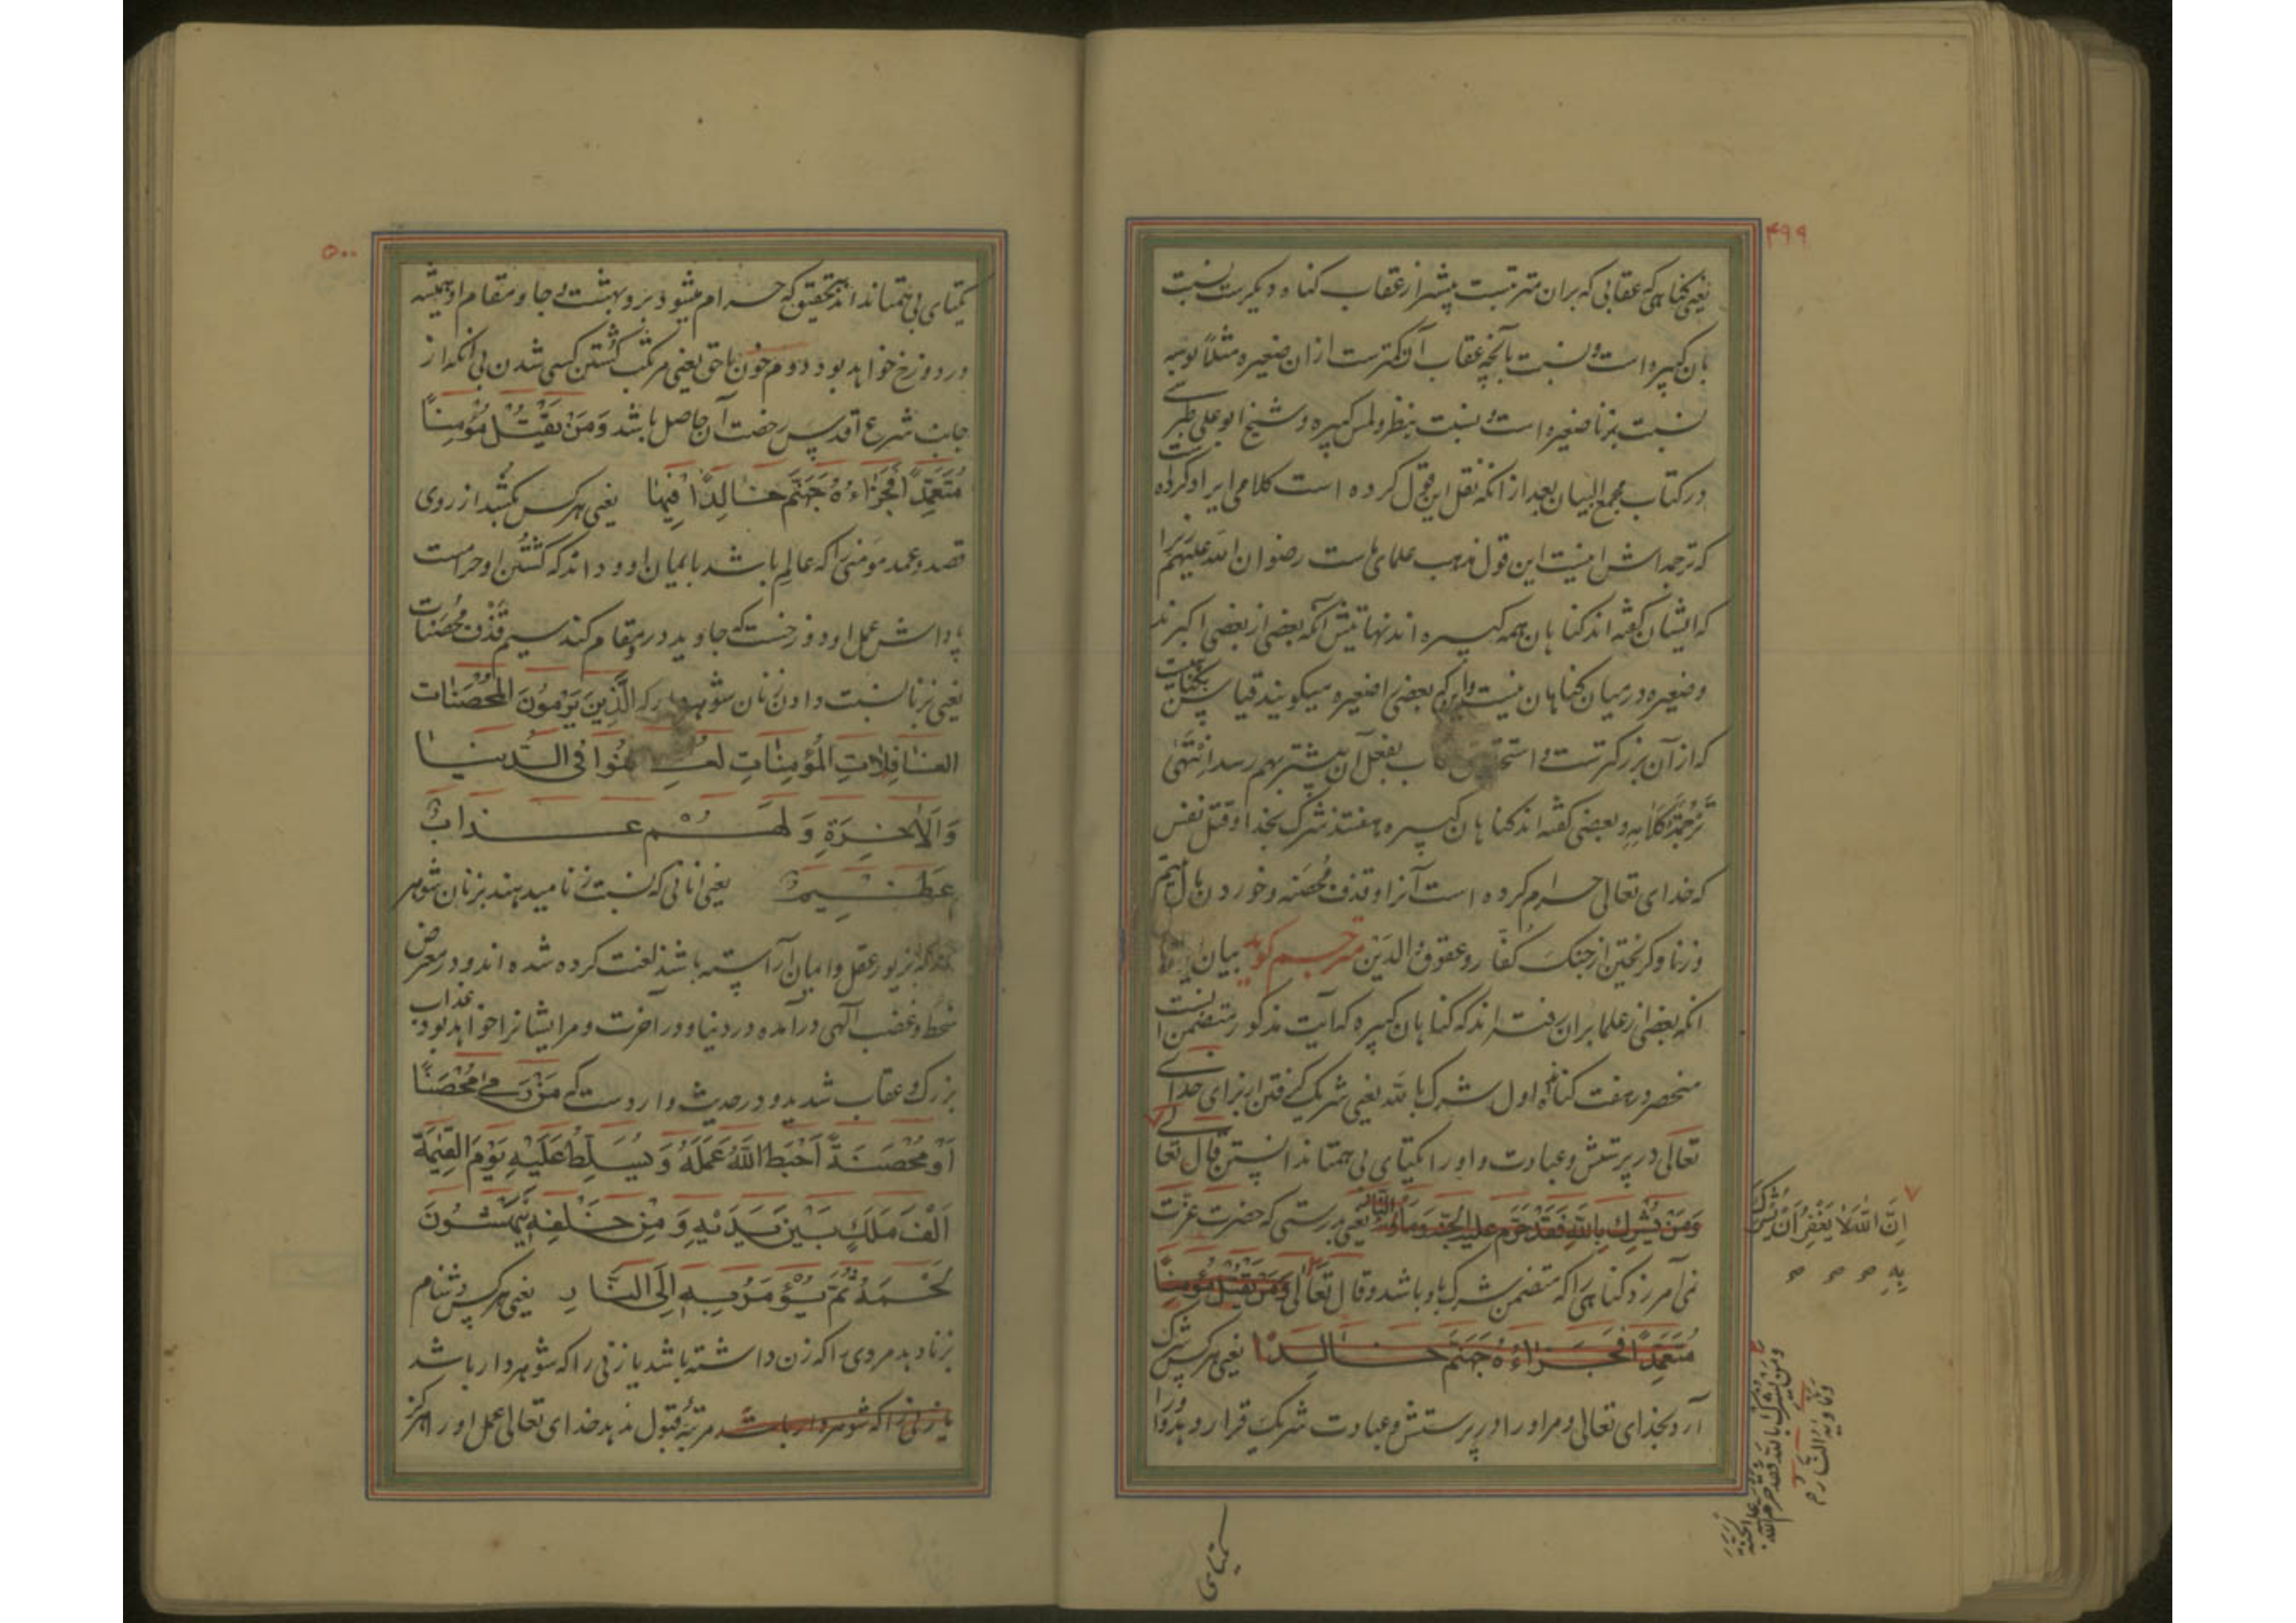 ۴۹۹
یعنی گناهی که عقابی که بران مترتبست پیشتر از عقاب گناه دیگرست نسبت
بان کبیره است و نسبت بآنچه عقاب آن کمترست ازان صغیره مثلا بوسه
نسبت بزنا صغیره است و نسبت بنظر و لمس کبیره و شیخ ابو علی طبرسی
در کتاب مجمع البیان بعد از انکه نقل این قول کرده است کلامی ایراد کرده است
که ترجمه اش اینست این قول مذهب علمای ماست رضوان الله علیهم زیرا
که ایشان گفته اند گناهان همه کبیره اند نهایتش آنکه بعضی از بعضی اکبرند
و صغیره در میان گناهان نیست و این که بعضی را صغیره میگویند قیاس بگناهیست
که از آن بزرگترست و استحقاق عقاب بفعل آن بیشتر بهم رسد انتهی
ترجمة کلامه و بعضی گفته اند گناهان کبیره هفتند شرک بخدا و قتل نفس
که خدای تعالی حرام کرده است آنرا و قذف محصنه و خوردن مال یتیم
و زنا و گریختن از جنک کفار و عقوق الدین مترجم گوید بیان
انکه بعضی از علما بران رفته اند که گناهان کبیره که آیت مذکور متضمن انست
منحصر در هفت گناه اول شرک بالله یعنی شریک گرفتن از برای خدای
تعالی در پرستش و عبادت و او را یکتای بی همتا ندانستن قال تعالی
وَمَنْ یُشْرِك بِاللهِ فَقَدْ حَرَّم علیه الجنّة وماواه النّار یعنی بدرستی که حضرت عزّت
نمی آمرزد گناهی را که متضمن شرک باو باشد و قال تَعَالٰی وَمَنْ یَقْتُلْ مُؤْمِنًا
مُتَعَمِّدًا فَجَزَاءُهُ جَهَنَّم خَالِدًا یعنی هر کس شرک
آرد بخدای تعالی و مر او را در پرستش و عبادت شریک قرار دهد و او را
اِنَّ اللهَ لا یَغْفِرُ اَنْ یُشْرَكَ
بِهِ
وَمَنْ یُشْرِكْ بِاللهِ فَقَدْ حَرَّمَ اللهُ
عَلَیْهِ الْجَنَّةَ
وَمَاْوٰیهُ النَّار
یکتای
۵۰۰
یکتای بی همتا نداند بتحقیق که حرام میشود برو بهشت و جا و مقام او همیشه
در دوزخ خواهد بود دوم خون ناحق یعنی مرتکب کشتن کسی شدن بی انکه از
جانب شرع اقدس رخصت آن حاصل باشد وَمَنْ یَقْتُلْ مُؤْمِنًا
مُتَعَمِّدًا فَجَزَاءُهُ جَهَنَّم خَالِدًا فِیهَا یعنی هر کس بکشد از روی
قصد و عمد مؤمنی را که عالم باشد بایمان او و داند که کشتن او حرامست
پاداش عمل او دوزخست که جاوید درو مقام کند سیم قذف محصنات
یعنی بزنا نسبت دادن زنان شوهردار که الَّذِینَ یَرْمُونَ الْمُحْصَنَات
الغَافِلَاتِ الْمُؤْمِنَاتِ لُعِنُوا فِی الدُّنْیَا
وَالْاٰخِرَةِ وَلَهُمْ عَذَابٌ
عَظِیمٌ یعنی انانی که نسبت زنا میدهند بزنان شوهر
که بزیور عقل و ایمان آراسته باشند لعنت کرده شده اند و در معرض
سخط و غضب الهی درآمده در دنیا و در آخرت و مر ایشانرا خواهد بود عذاب
بزرگ و عقاب شدید و در حدیث واردست که مَنْ رَمٰی مُحْصَنًا
اَوْ مُحْصَنَةً اَحْبَطَ اللهُ عَمَلَهُ وَیُسَلِّطُ عَلَیْهِ یَوْمَ الْقِیٰمَة
اَلْفَ مَلَكٍ بَیْنَ یَدَیْهِ وَمِنْ خَلْفِهِ یَنْهَشُونَ
لَحْمَهُ ثُمَّ یُؤْمَرُ بِهِ اِلَی النَّارِ یعنی هر کس دشنام
بزنا دهد مردی را که زن داشته باشد یا زنی را که شوهردار باشد
یا زنی را که شوهردار باشد مرتبهٔ قبول ندهد خدای تعالی عمل او را هرگز